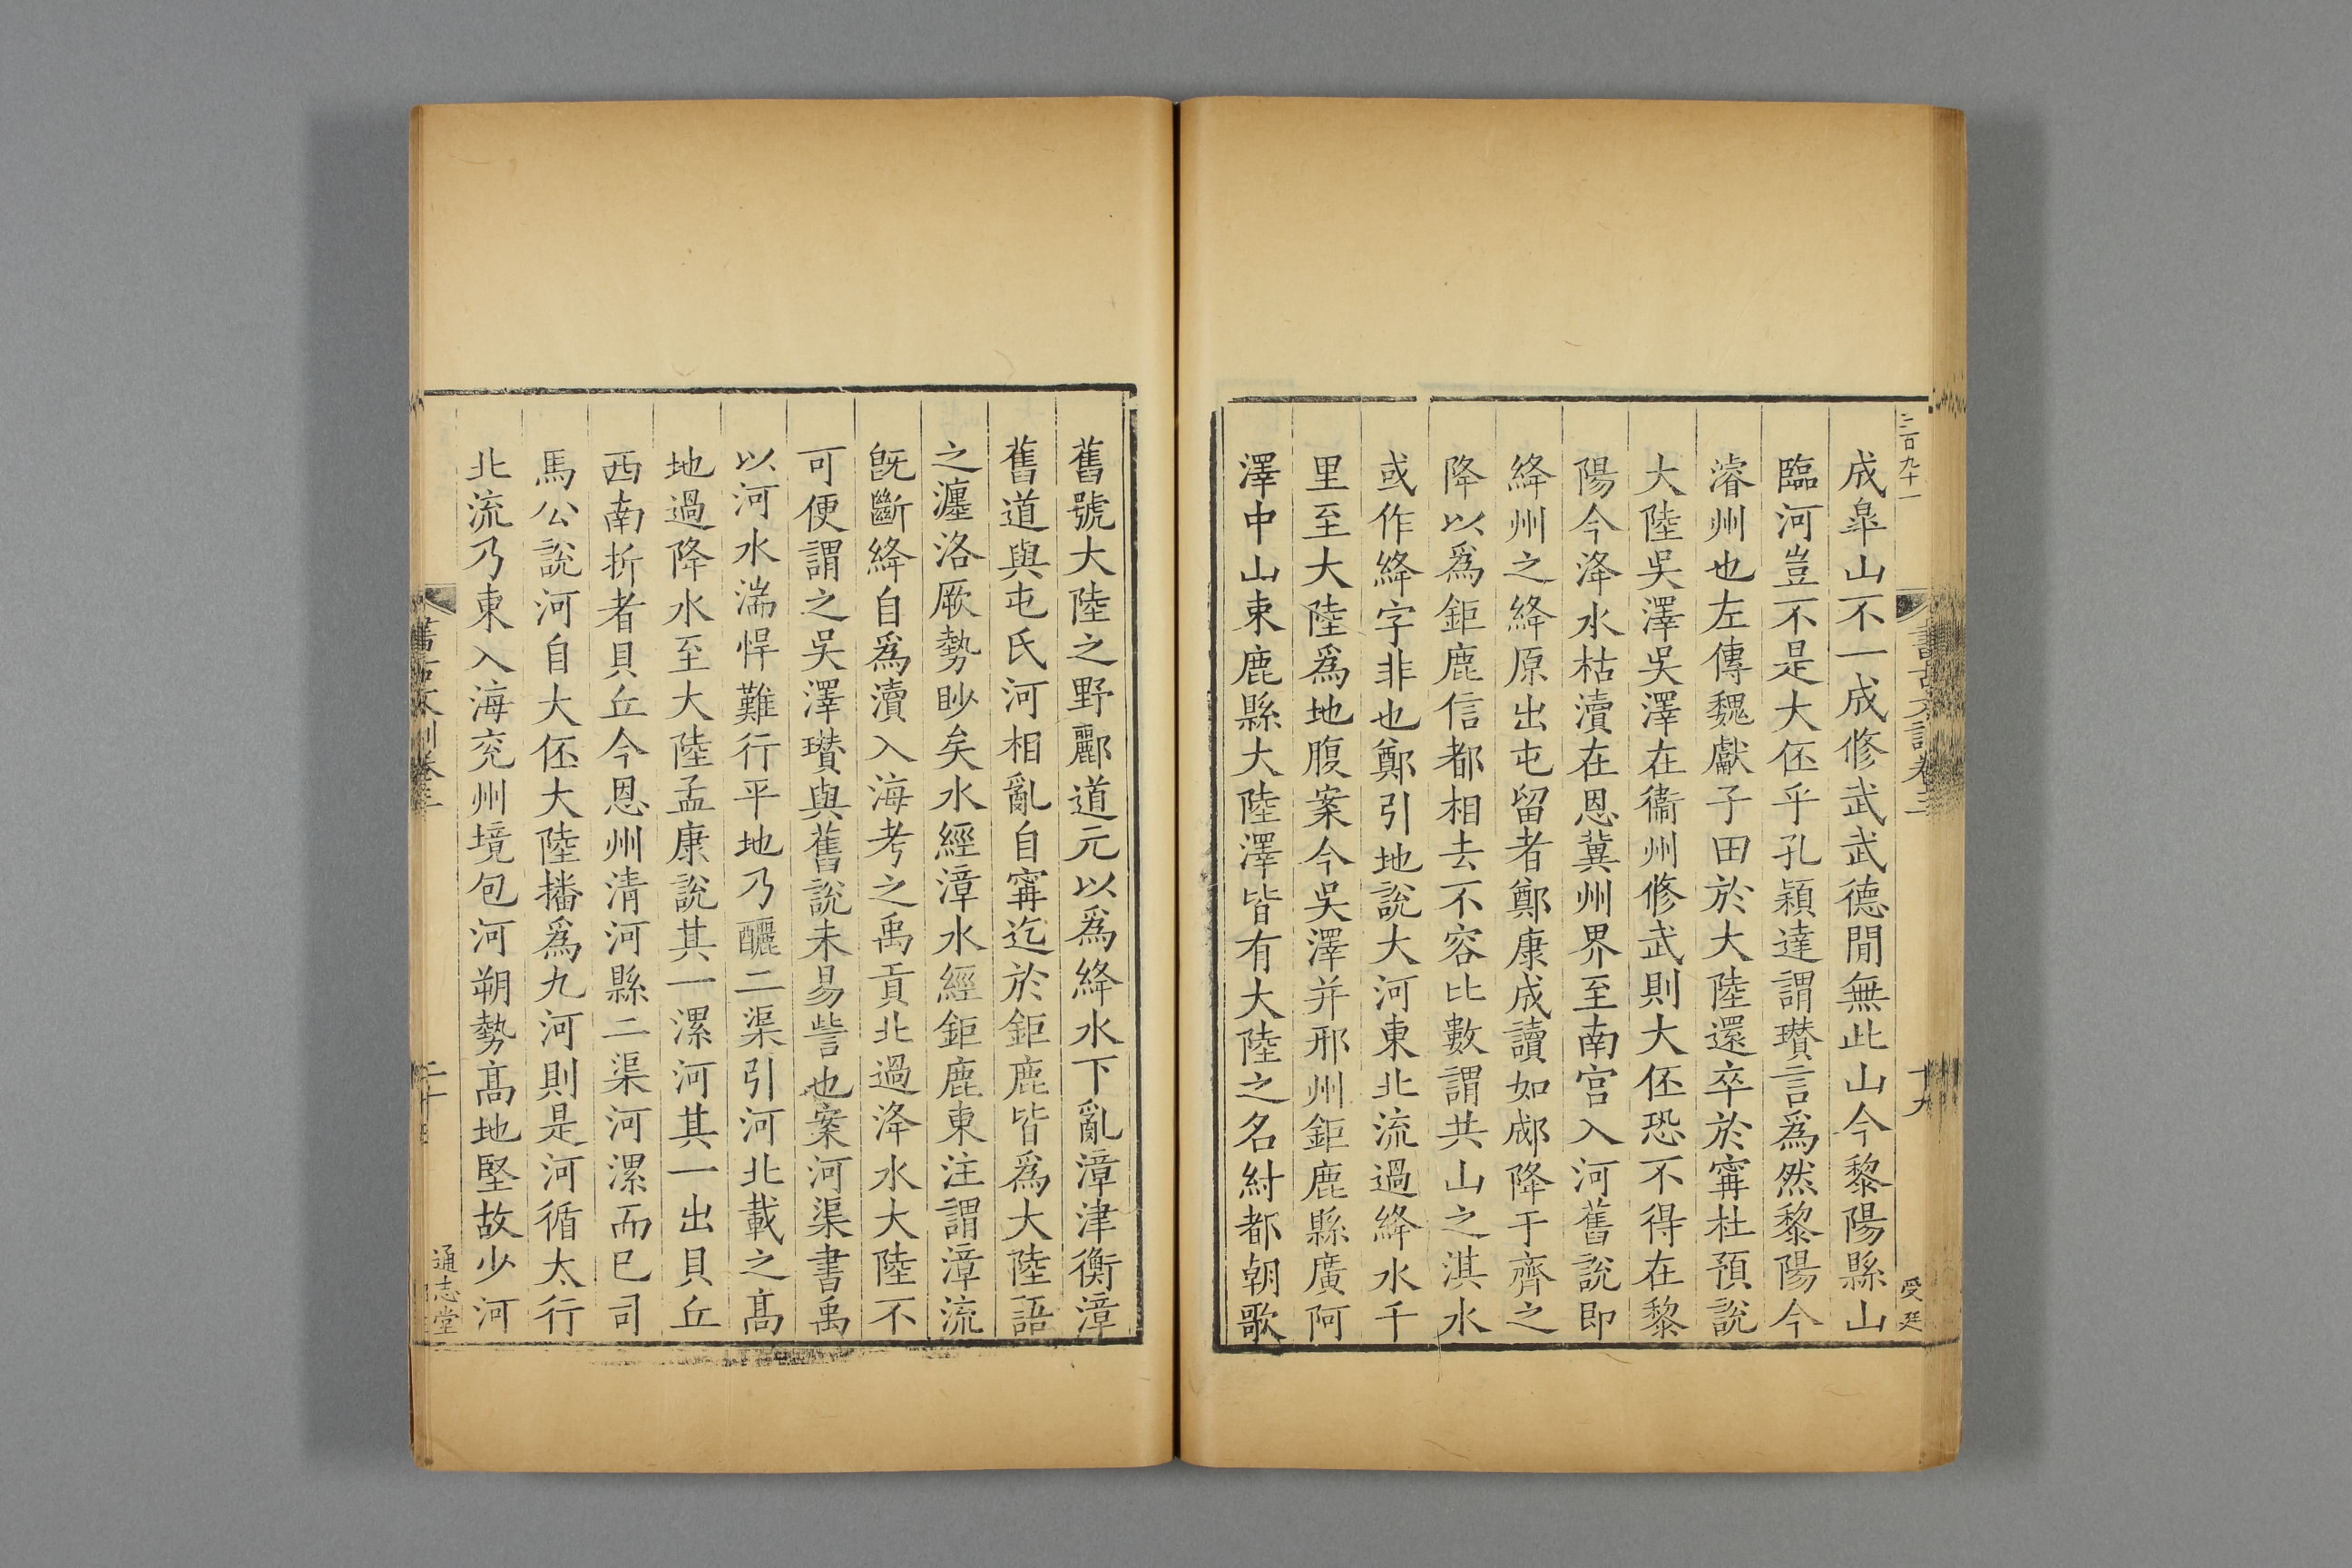 三百九十一
成皐山不一成修武武德閒無此山今黎陽縣山
臨河豈不是大伾乎孔穎達謂瓚言爲然黎陽今
濬州也左傳魏獻子田於大陸還卒於甯杜預說
大陸吳澤吳澤在衞州修武則大伾恐不得在黎
陽今洚水枯瀆在恩冀州界至南宮入河舊說即
絳州之絳原出屯留者鄭康成讀如郕降于齊之
降以爲鉅鹿信都相去不容比數謂共山之淇水
或作絳字非也鄭引地說大河東北流過絳水千
里至大陸爲地腹案今吳澤并邢州鉅鹿縣廣阿
澤中山束鹿縣大陸澤皆有大陸之名紂都朝歌
書古文訓卷三
十九
受廷
舊號大陸之野酈道元以爲絳水下亂漳津衡漳
舊道與屯氏河相亂自甯迄於鉅鹿皆爲大陸語
之瀍洛厥勢眇矣水經漳水經鉅鹿東注謂漳流
旣斷絳自爲瀆入海考之禹貢北過洚水大陸不
可便謂之吳澤瓚與舊說未易訾也案河渠書禹
以河水湍悍難行平地乃釃二渠引河北載之高
地過降水至大陸孟康說其一漯河其一出貝丘
西南折者貝丘今恩州清河縣二渠河漯而已司
馬公說河自大伾大陸播爲九河則是河循太行
北流乃東入海兖州境包河朔勢高地堅故少河
書古文訓卷三
二十
通志堂